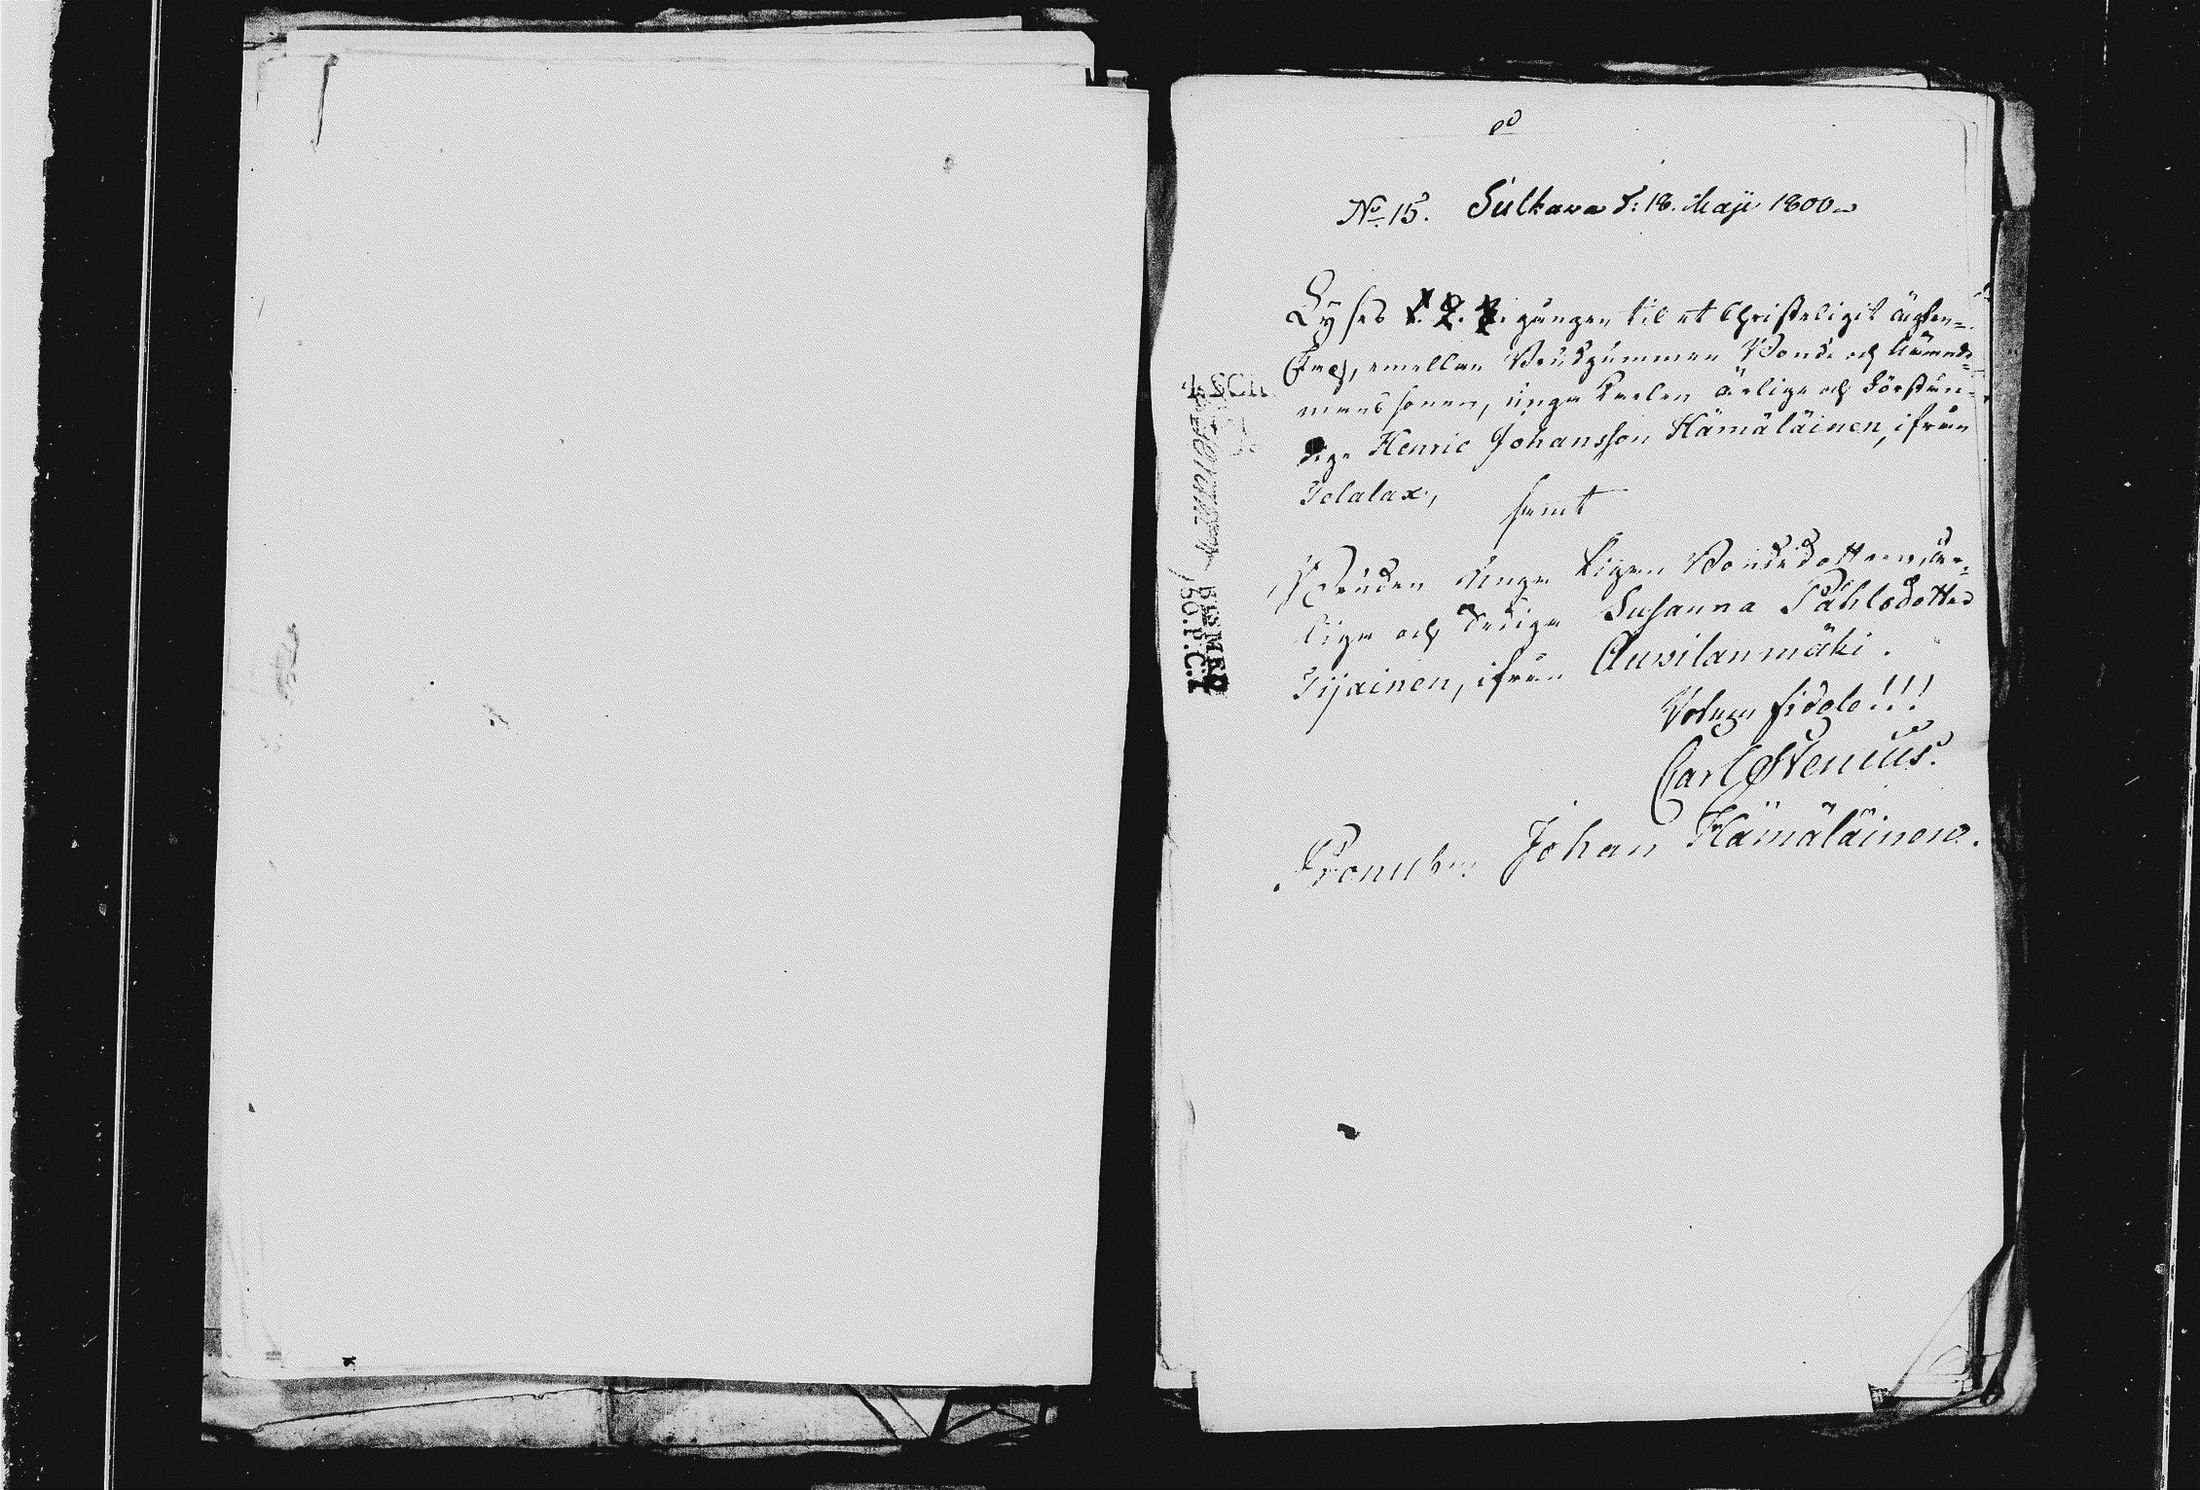 No 15. Sulkava d: 18. Maji 1800
Lyses 1. 2. 3. gången til et Christeligit ägten=
skap, emellan Brudgummen Bonde och Nämnde=
mans sonen, unge Karlen ärlige och Förstån=
dige Henric Johansson Hämäläinen, ifrån
Telalax,
samt
Bruden unga Pigan Bondedottren, är=
liga och dediga Susanna Påhlsdotter
Iijainen, ifrån Auvilanmäki.
fidele!!!
Carl Stenius.
Pronuba: Johan Hämäläinen.